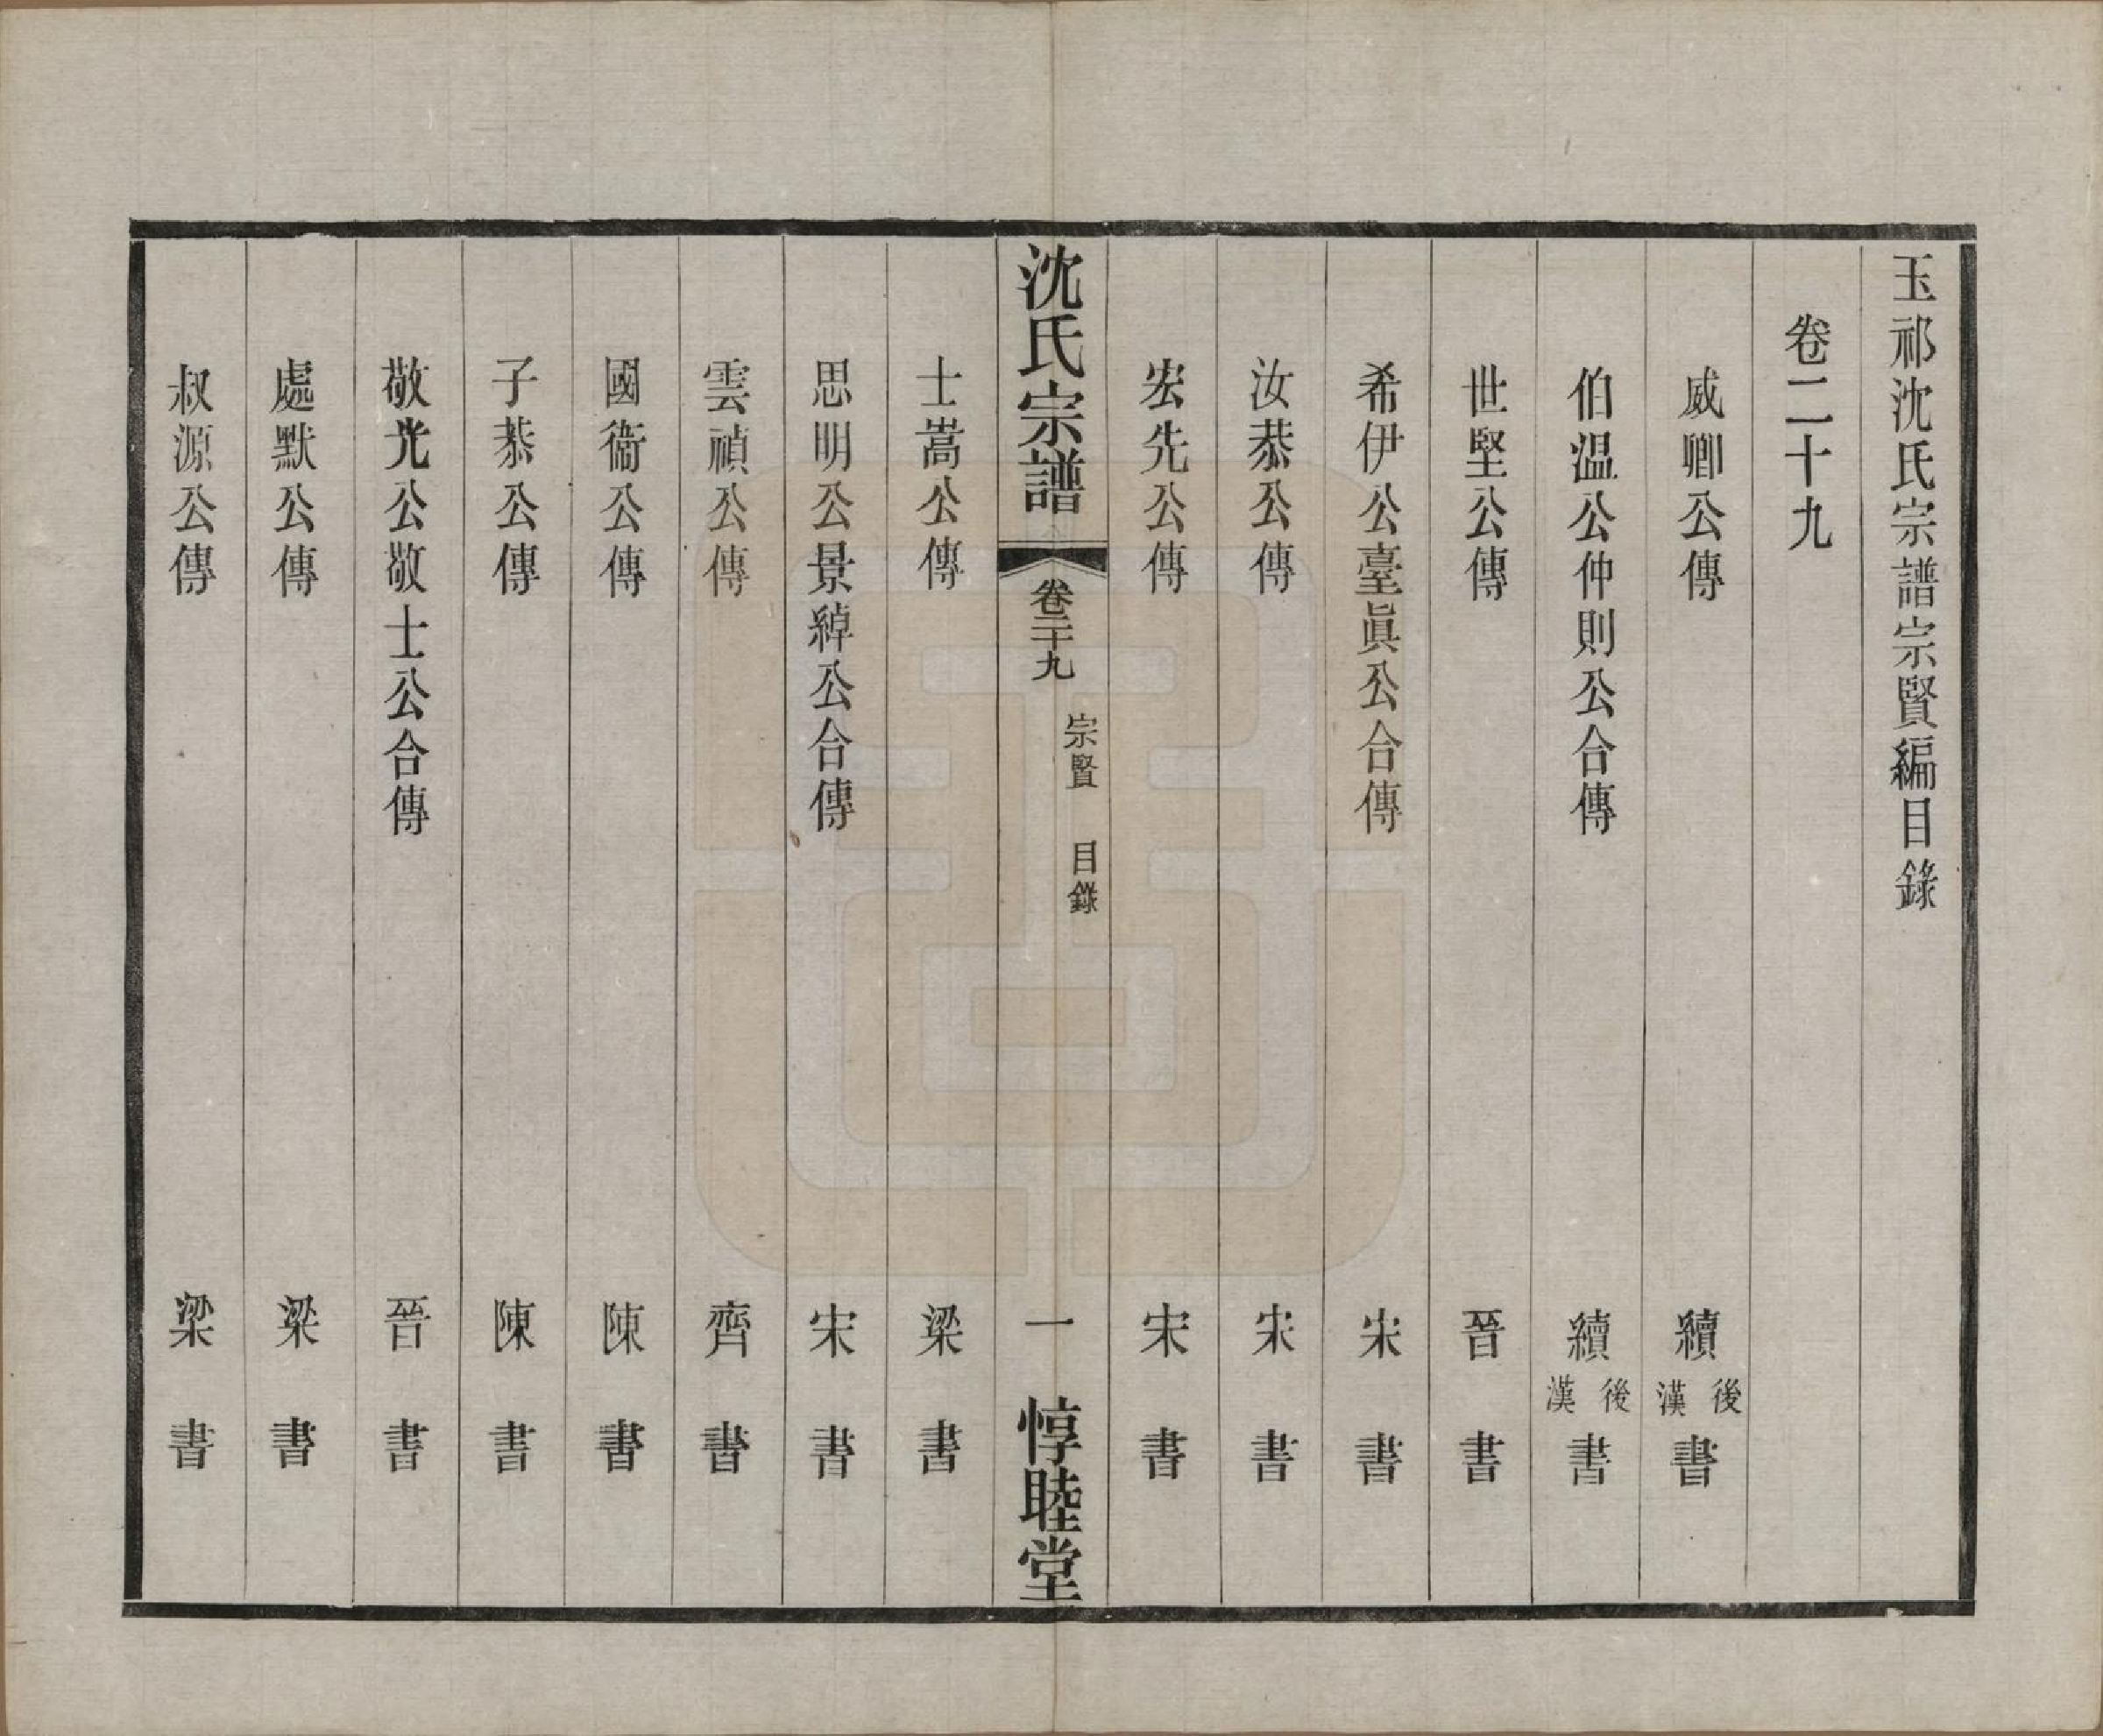 玉祁沈氏宗譜宗賢編目錄
卷二十九
威卿公傳 續後漢書
伯温公仲則公合傳 續後漢書
世堅公傳 晉書
希伊公臺眞公合傳 宋書
汝恭公傳 宋書
宏先公傳 宋書
沈氏宗譜 卷二十九 宗賢 目錄 一 惇睦堂
士嵩公傳 梁書
思明公景綽公合傳 宋書
雲禎公傳 齊書
國衞公傳 陳書
子恭公傳 陳書
敬光公敬士公合傳 晉書
處默公傳 梁書
叔源公傳 梁書